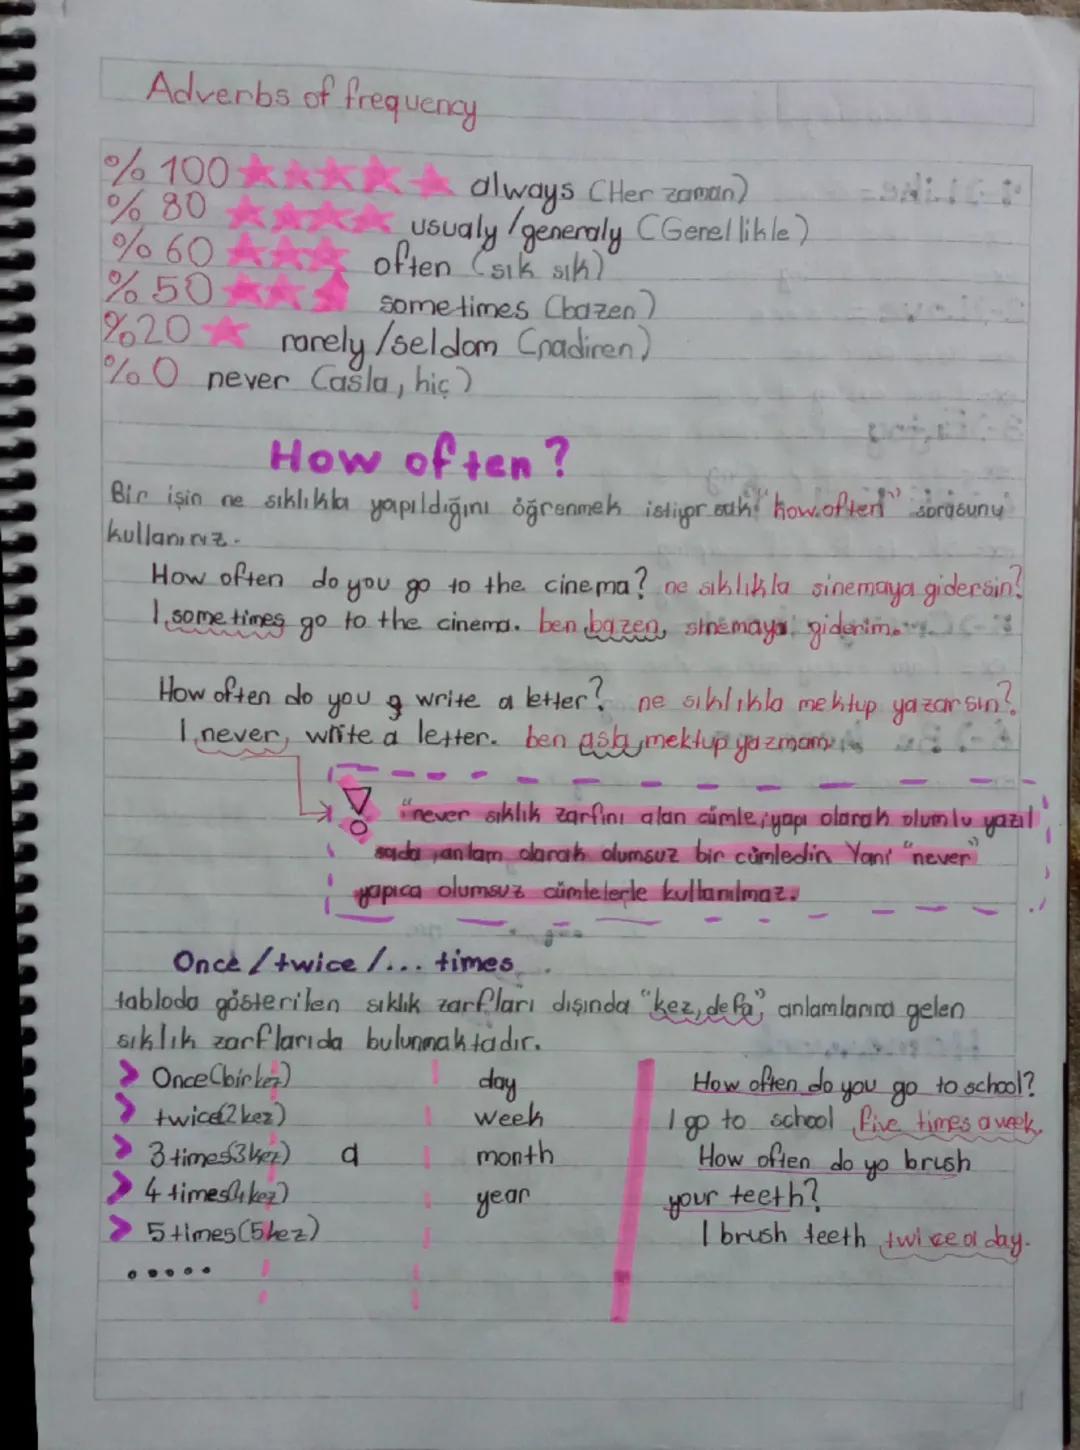 Adverbs of frequency
% 100 always (Her zaman)
% 80 usualy/generaly (Genellikle)
% 60 often (sık sık)
% 50 sometimes (bazen)
%20 rarely/seldom (nadiren)
% 0 never (asla, hiç)
How often?
Bir işin ne sıklıkla yapıldığını öğrenmek istiyorsak "how often" sorusunu
kullanırız.
How often do you go to the cinema? ne sıklıkla sinemaya gidersin?
I sometimes go to the cinema. ben bazen sinemaya giderim.
How often do you g write a letter? ne sıklıkla mektup yazarsın?
I never write a letter. ben asla mektup yazmam.
! "never sıklık zarfını alan cümle, yapı olarak olumlu yazıl
sada, anlam olarak olumsuz bir cümledin Yani "never"
yapıca olumsuz cümlelerle kullanılmaz.
Once/twice/... times
tabloda gösterilen sıklık zarfları dışında "kez, defa" anlamlarına gelen
sıklık zarflarıda bulunmaktadır.
> Once(bir kez) day How often do you go to school?
> twice(2 kez) week I go to school five times a week.
> 3 times(3 kez) a month How often do yo brush
> 4 times(4 kez) year your teeth?
> 5 times(5 kez) I brush teeth twice a day.
.....